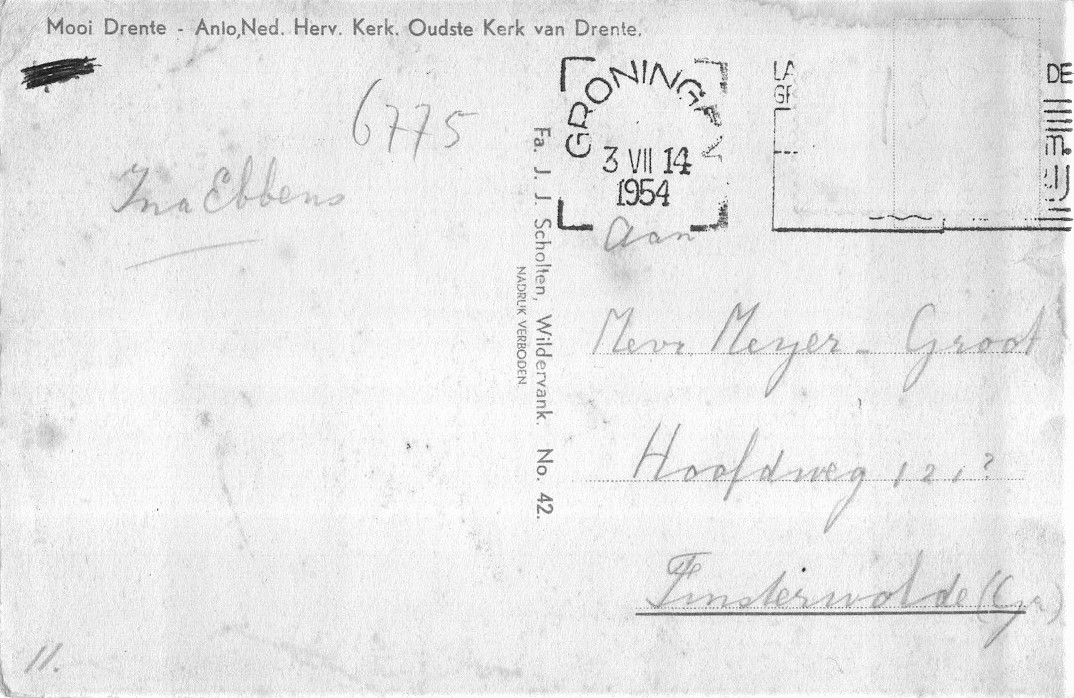 Mooi Drente - Anlo, Ned. Herv. Kerk. Oudste Kerk van Drente.
6775
Ina Ebbens
Fa. J. J. Scholten, Wildervank. No. 42.
NADRUK VERBODEN
GRONINGEN
3 VII 14
1954
LA
GR
DE
Aan
Mevr Meyer - Groot
Hoofdweg 121?
Finsterwolde (Gr)
11.